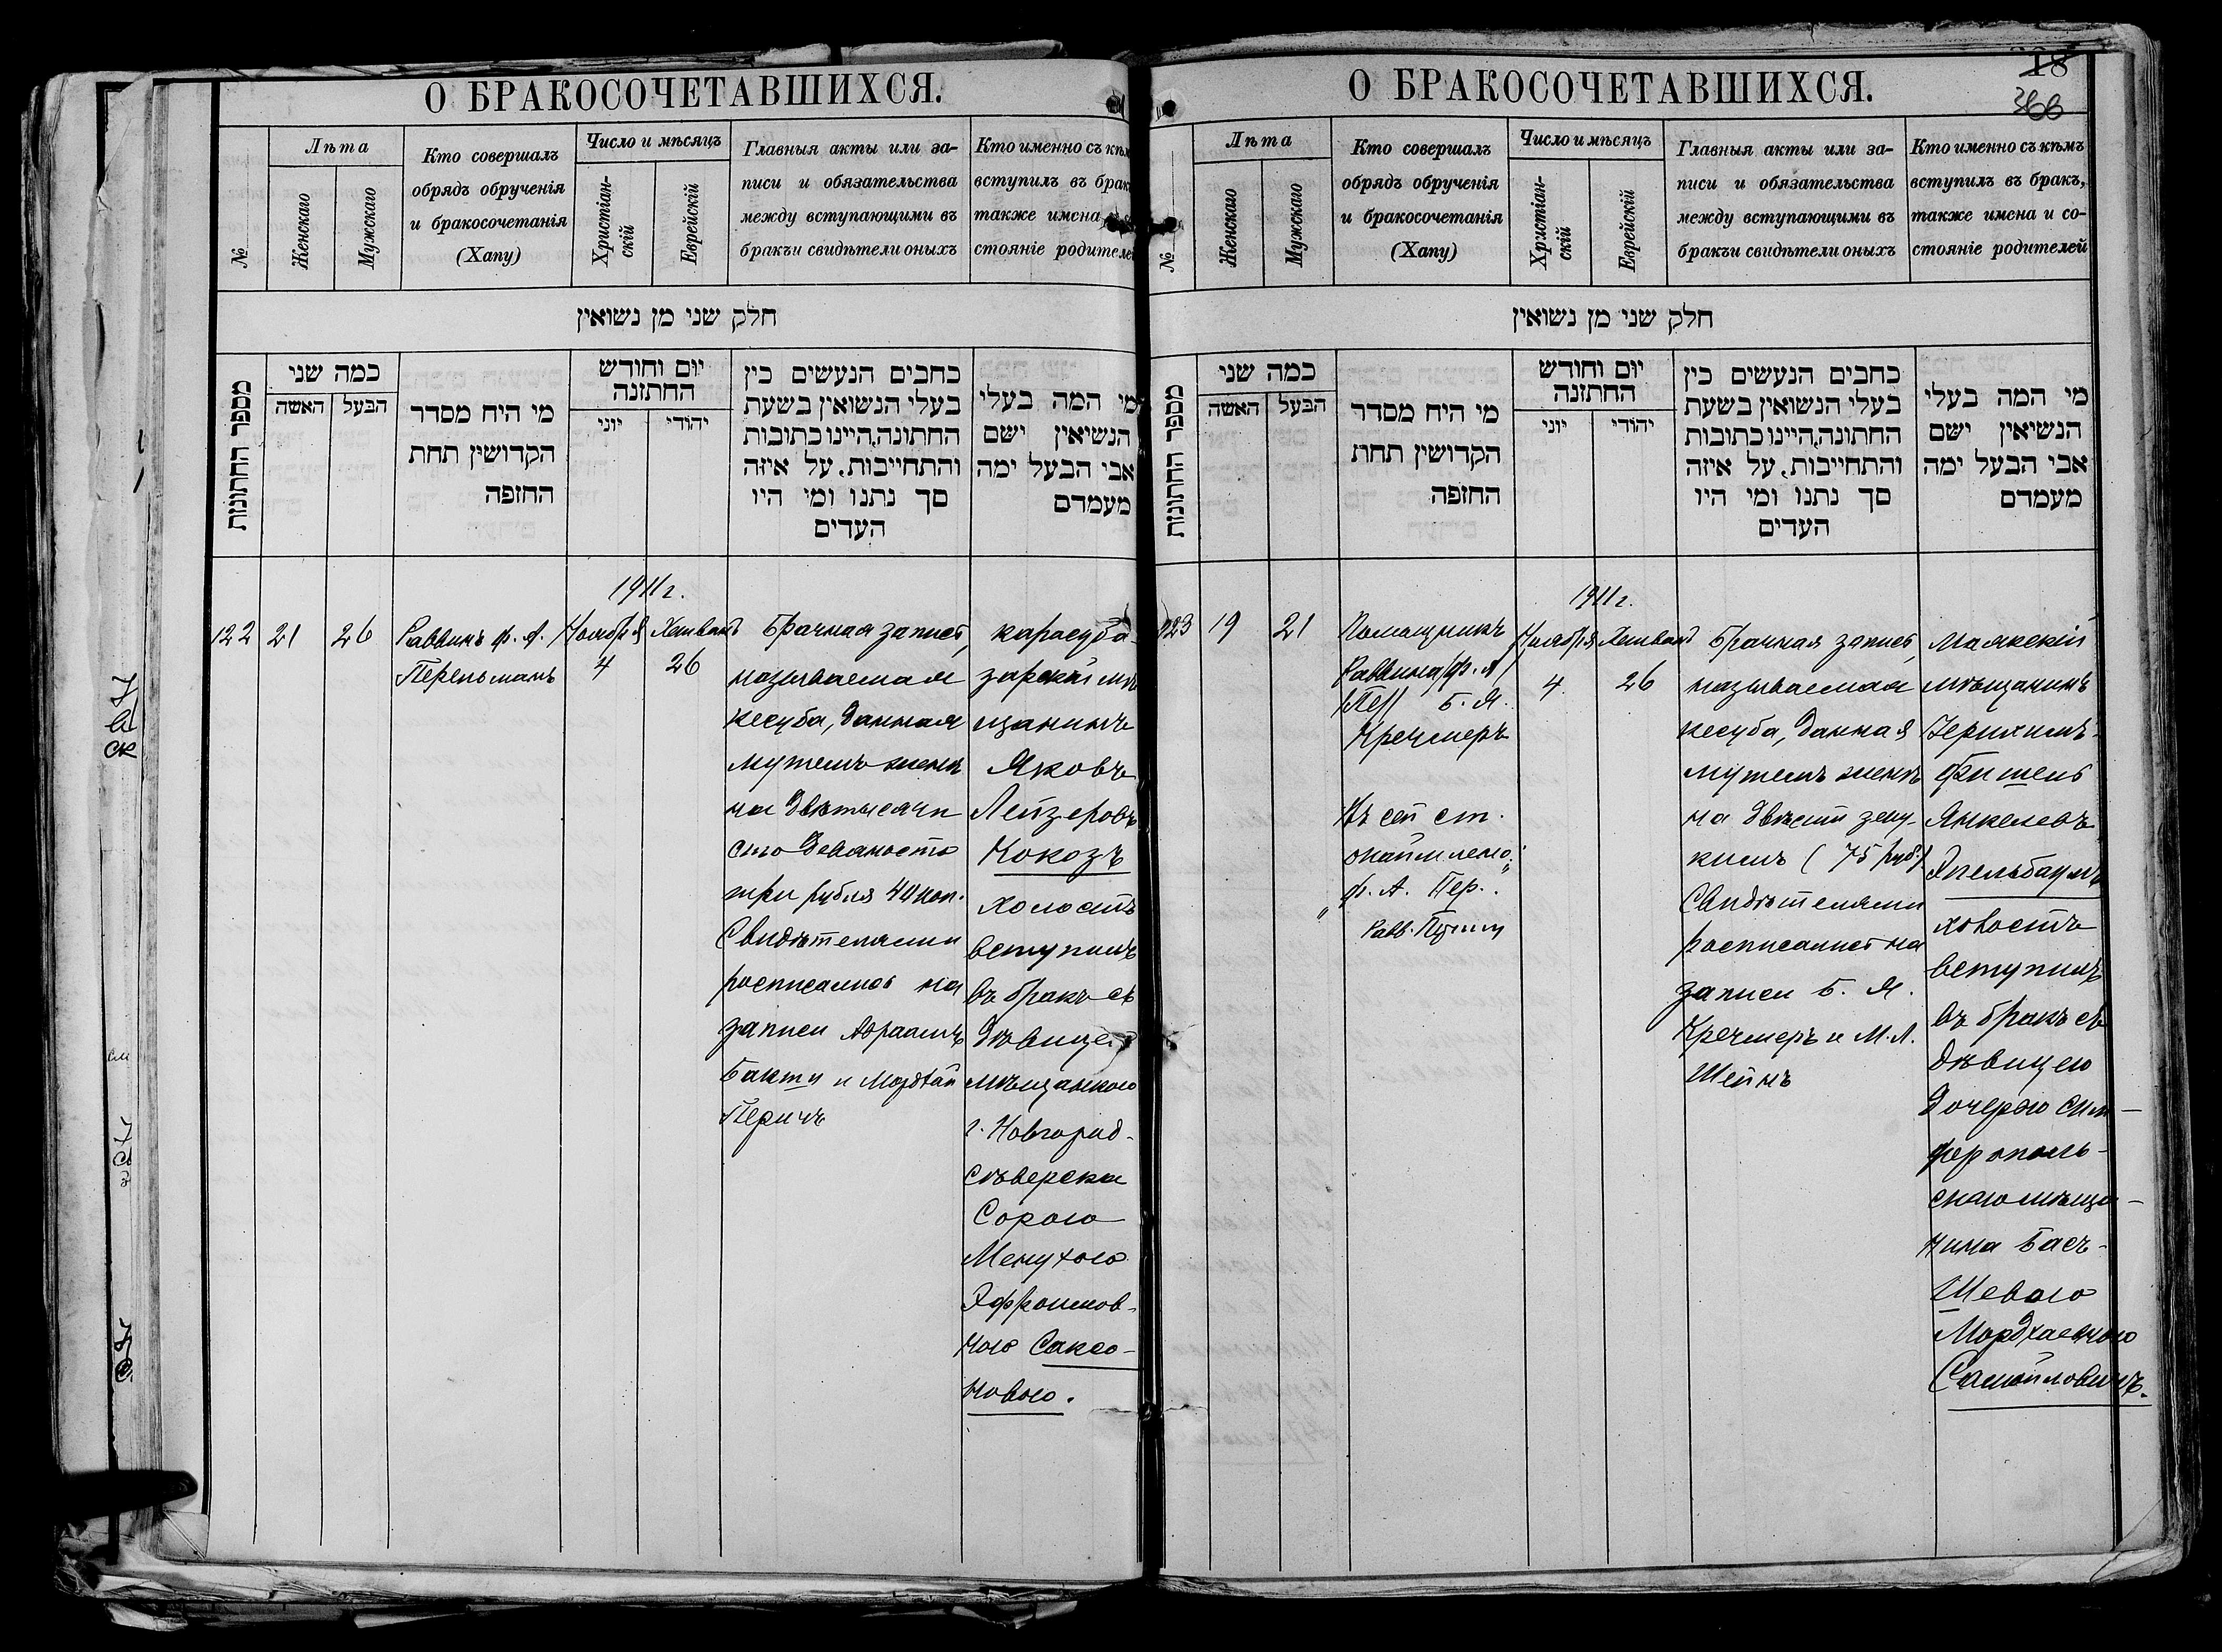 О БРАКОСОЧЕТАВШИХСЯ.
№
Лѣта
Женскаго
Мужскаго
Кто совершалъ
обрядъ обрученія
и бракосочетанія
(Хапу)
Число и мѣсяцъ
Христіан-
скій
Еврейскій
Главныя акты или за-
писи и обязательства
между вступающими въ
бракъи свидѣтели оныхъ
Кто именно съ
вступилъ въ
также имена
стояніе
חלק שני מן נשואין
מספר החתונות
כמה שני
האשה
הבעל
מי היח מסדר
הקדושין תחת
החופה
יום וחודש
החתונה
יוני
יהודי
כחבים הנעשים כין
בעלי הנשואין בשעת
החתונה,היינו כתובות
והתחייבות, על איזה
סך נתנו ומי היו
העדים
מי המה בעלי
הנשיאין ישם
אבי הבעל ימה
מעמדם
1911 г.
122
21
26
Раввинъ Ф. А.
Перельманъ
Ноября
4
Хешванъ
26
Брачная запись,
называемая
кесуба, данная
мужемъ женѣ
на двѣ тысячи
сто девяносто
три рубля 40 коп.
Свидѣтелями
росписались на
записи Абраамъ
Бакши и Мордхай
Перичъ
карасуба-
зарскій мѣ
щанинъ
Яковъ
Лейзеровъ
Кокозъ
холостъ
вступилъ
въ бракъ съ
дѣвицей
мѣщанкою
г. Новгород-
Сѣверска
Сорою
Менухою
Эфроимов-
ною Саксо-
новою.
О БРАКОСОЧЕТАВШИХСЯ.
18
366
№
Лѣта
Женскаго
Мужскаго
Кто совершалъ
обрядъ обрученія
и бракосочетанія
(Хапу)
Число и мѣсяцъ
Христіан-
скій
Еврейскій
Главныя акты или за-
писи и обязательства
между вступающими въ
бракъи свидѣтели оныхъ
Кто именно съ кѣмъ
вступилъ въ бракъ,
также имена и со-
стояніе родителей
חלק שני מן נשואין
מספר החתונות
כמה שני
האשה
הבעל
מי היח מסדר
הקדושין תחת
החופה
יום וחודש
החתונה
יוני
יהודי
כחבים הנעשים כין
בעלי הנשואין בשעת
החתונה,היינו כתובות
והתחייבות, על איזה
סך נתנו ומי היו
העדים
מי המה בעלי
הנשיאין ישם
אבי הבעל ימה
מעמדם
1911 г.
123
19
21
Помощникъ
Раввина (Ф. А.
Пер) Б. Я.
Кречмеръ
Въ сей ст.
"Ф. А. Пер."
Равв.
Ноября
4
Хешванъ
26
Брачная запись,
называемая
кесуба, данная
мужемъ женѣ
на двѣсти зеку-
кимъ (75 руб.)
Свидѣтелями
росписались на
записи Б. Я.
Кречмеръ и М. Л.
Шейнъ
Маякскій
мѣщанинъ
Іерихимъ-
Фишель
Янкелевъ
Эпельбаумъ
холостъ
вступилъ
въ бракъ съ
дѣвицею
дочерью сим-
ферополь-
скаго мѣща-
нина Басъ-
Шевою
Мордхаевною
Самойловичъ.